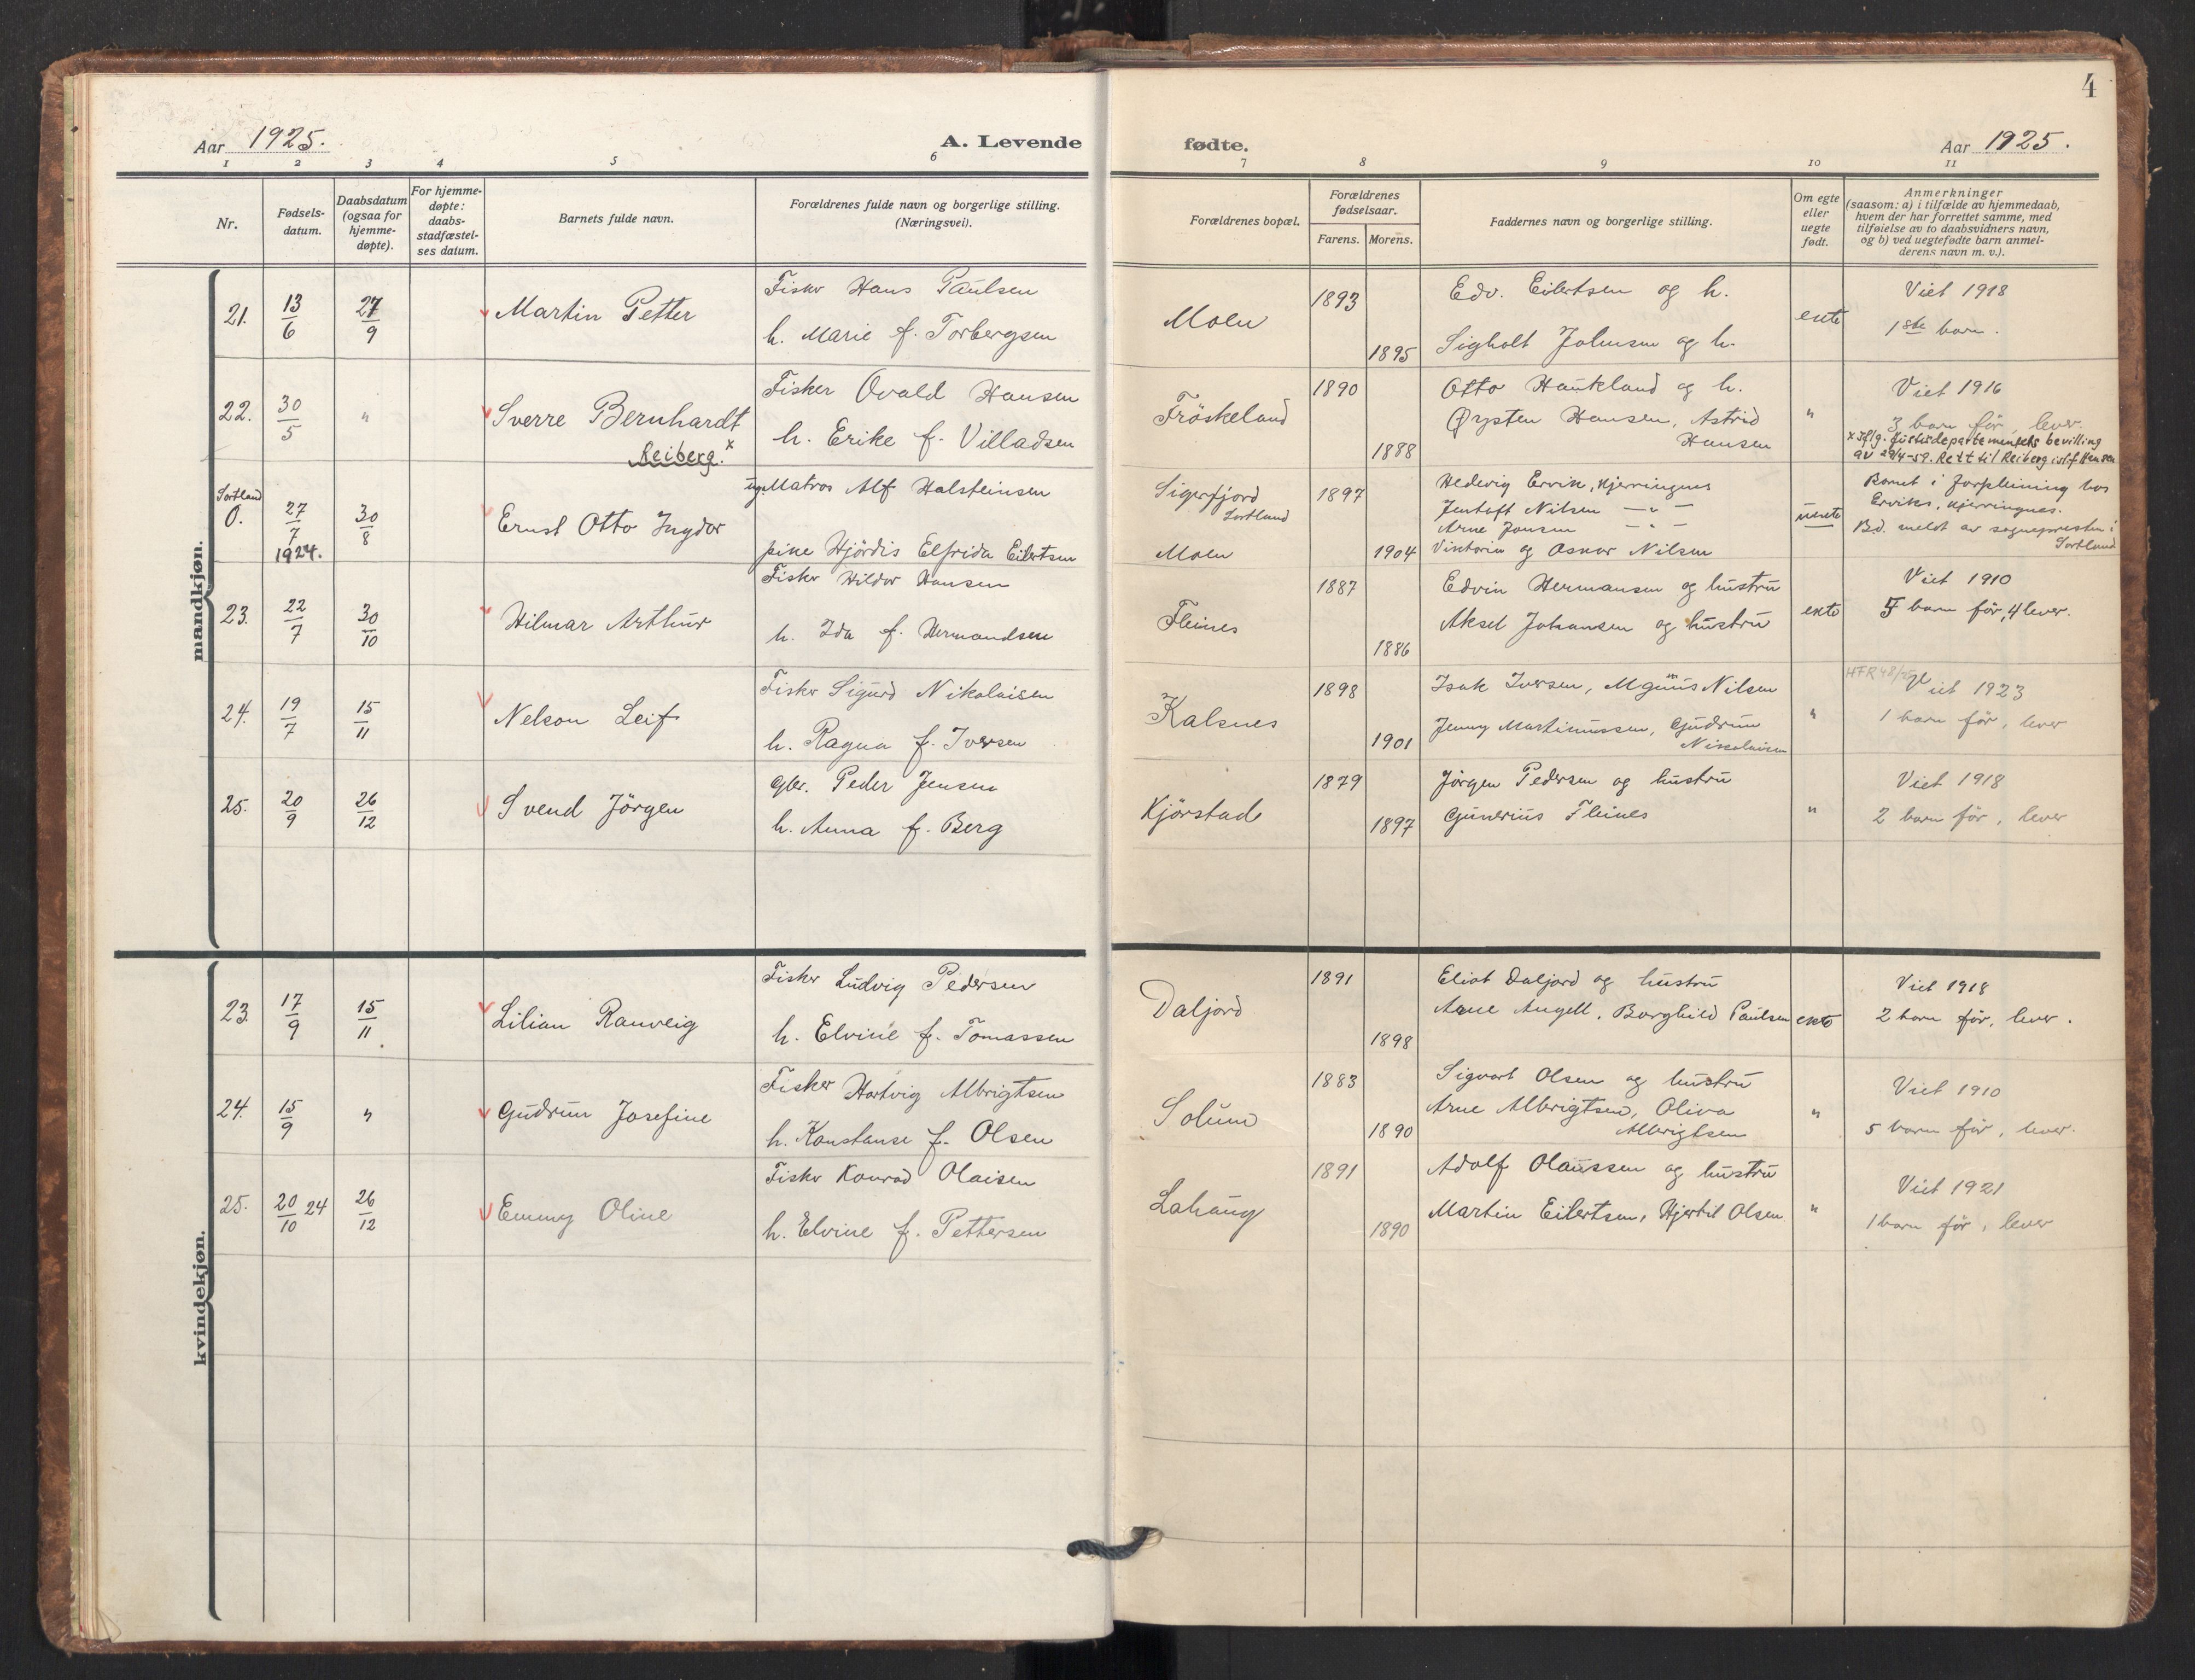 4
Aar 1925. A. Levende fødte. Aar 1925.
1 2 3 4 5 6 7 8 9 10 11
Nr.
Fødsels-
datum.
Daabsdatum
(ogsaa for
hjemme-
døpte).
For hjemme-
døpte:
daabs-
stadfæstel-
ses datum.
Barnets fulde navn.
Forældrenes fulde navn og borgerlige stilling.
(Næringsvei).
Forældrenes bopæl.
Forældrenes
fødselsaar.
Farens. Morens.
Faddernes navn og borgerlige stilling.
Om egte
eller
uegte
født.
Anmerkninger
(saasom: a) i tilfælde av hjemmedaab,
hvem der har forrettet samme, med
tilføielse av to daabsvidners navn,
og b) ved uegtefødte barn anmel-
derens navn m. v.).
mandkjøn.
21. 13/6 27/9 Martin Petter
Fisker Hans Paulsen
h. Marie f. Torbergsen
Moen 1893
1895
Edv. Eilertsen og h.
Sigholt Johnsen og h.
ekte
Viet 1918
1ste barn.
22. 30/5 " Sverre Bernhardt
Reiberg. x
Fisker Ovald Hansen
h. Erike f. Villadsen
Fröskeland 1890
1888
Otto Haukland og h.
Ørysten Hansen, Astrid
Hansen
"
Viet 1916
3 barn för, lever.
x Iflg. Justisdepartementets bevilling
av 29/4-59. Rett til Reiberg istf Hansen
Sortland
O. 27/7 30/8
1924.
Ernst Otto Ingdor
ug. Matros Alf Halsteinsen
pike Hjördis Elfrida Eilertsen
Sigerfjord 1897
Sortland
Moen 1904
Hedevig Ervik, Kjerringnes
Jentoft Nilsen — " —
Arne Jansen — " —
Viktoria og Oskar Nilsen
uekte
Barnet i forpleining hos
Erviks, Kjerringnes.
Bd. meldt av sognepresten i
Sortland
23. 22/7 30/10 Hilmar Arthur
Fisker Hildor Hansen
h. Ida f. Hermandsen
Fleines 1887
1886
Edvin Hermansen og hustru
Aksel Johansen og hustru
ekte
Viet 1910
5 barn för, 4 lever.
24. 19/7 15/11 Nelson Leif
Fisker Sigurd Nikolaisen
h. Ragna f. Iversen
Kalsnes 1898
1901
Isak Iversen, Mgnus Nilsen
Jenny Martinussen, Gudrun
Nikolaisen
"
Viet 1923
1 barn för, lever
25. 20/9 26/12 Svend Jörgen
Gbr. Peder Jensen
h. Anna f. Berg
Kjörstad 1879
1897
Jörgen Pedersen og hustru
Gunerius Fleines
"
Viet 1918
2 barn för, lever
kvindekjøn.
23. 17/9 15/11. Lilian Ranveig
Fisker Ludvig Pedersen
h. Elvine f. Tomassen
Daljord 1891
1898
Eliot Daljord og hustru
Arne Angell, Borghild Paulsen
ekte
Viet 1918
2 barn för, lever.
24. 15/9 " Gudrun Josefine
Fisker Hartvig Albrigtsen
h. Konstanse f. Olsen
Solum 1883
1890
Sigvart Olsen og hustru
Arne Albrigtsen, Oliva
Albrigtsen
"
Viet 1910
5 barn för, lever.
25. 20/10 24 26/12 Emmy Oline
Fisker Konrad Olaisen
h. Elvine f. Pettersen
Lahaug 1891
1890
Adolf Olaussen og hustru
Martin Eilertsen, Hjertil Olsen
"
Viet 1921
1 barn för, lever